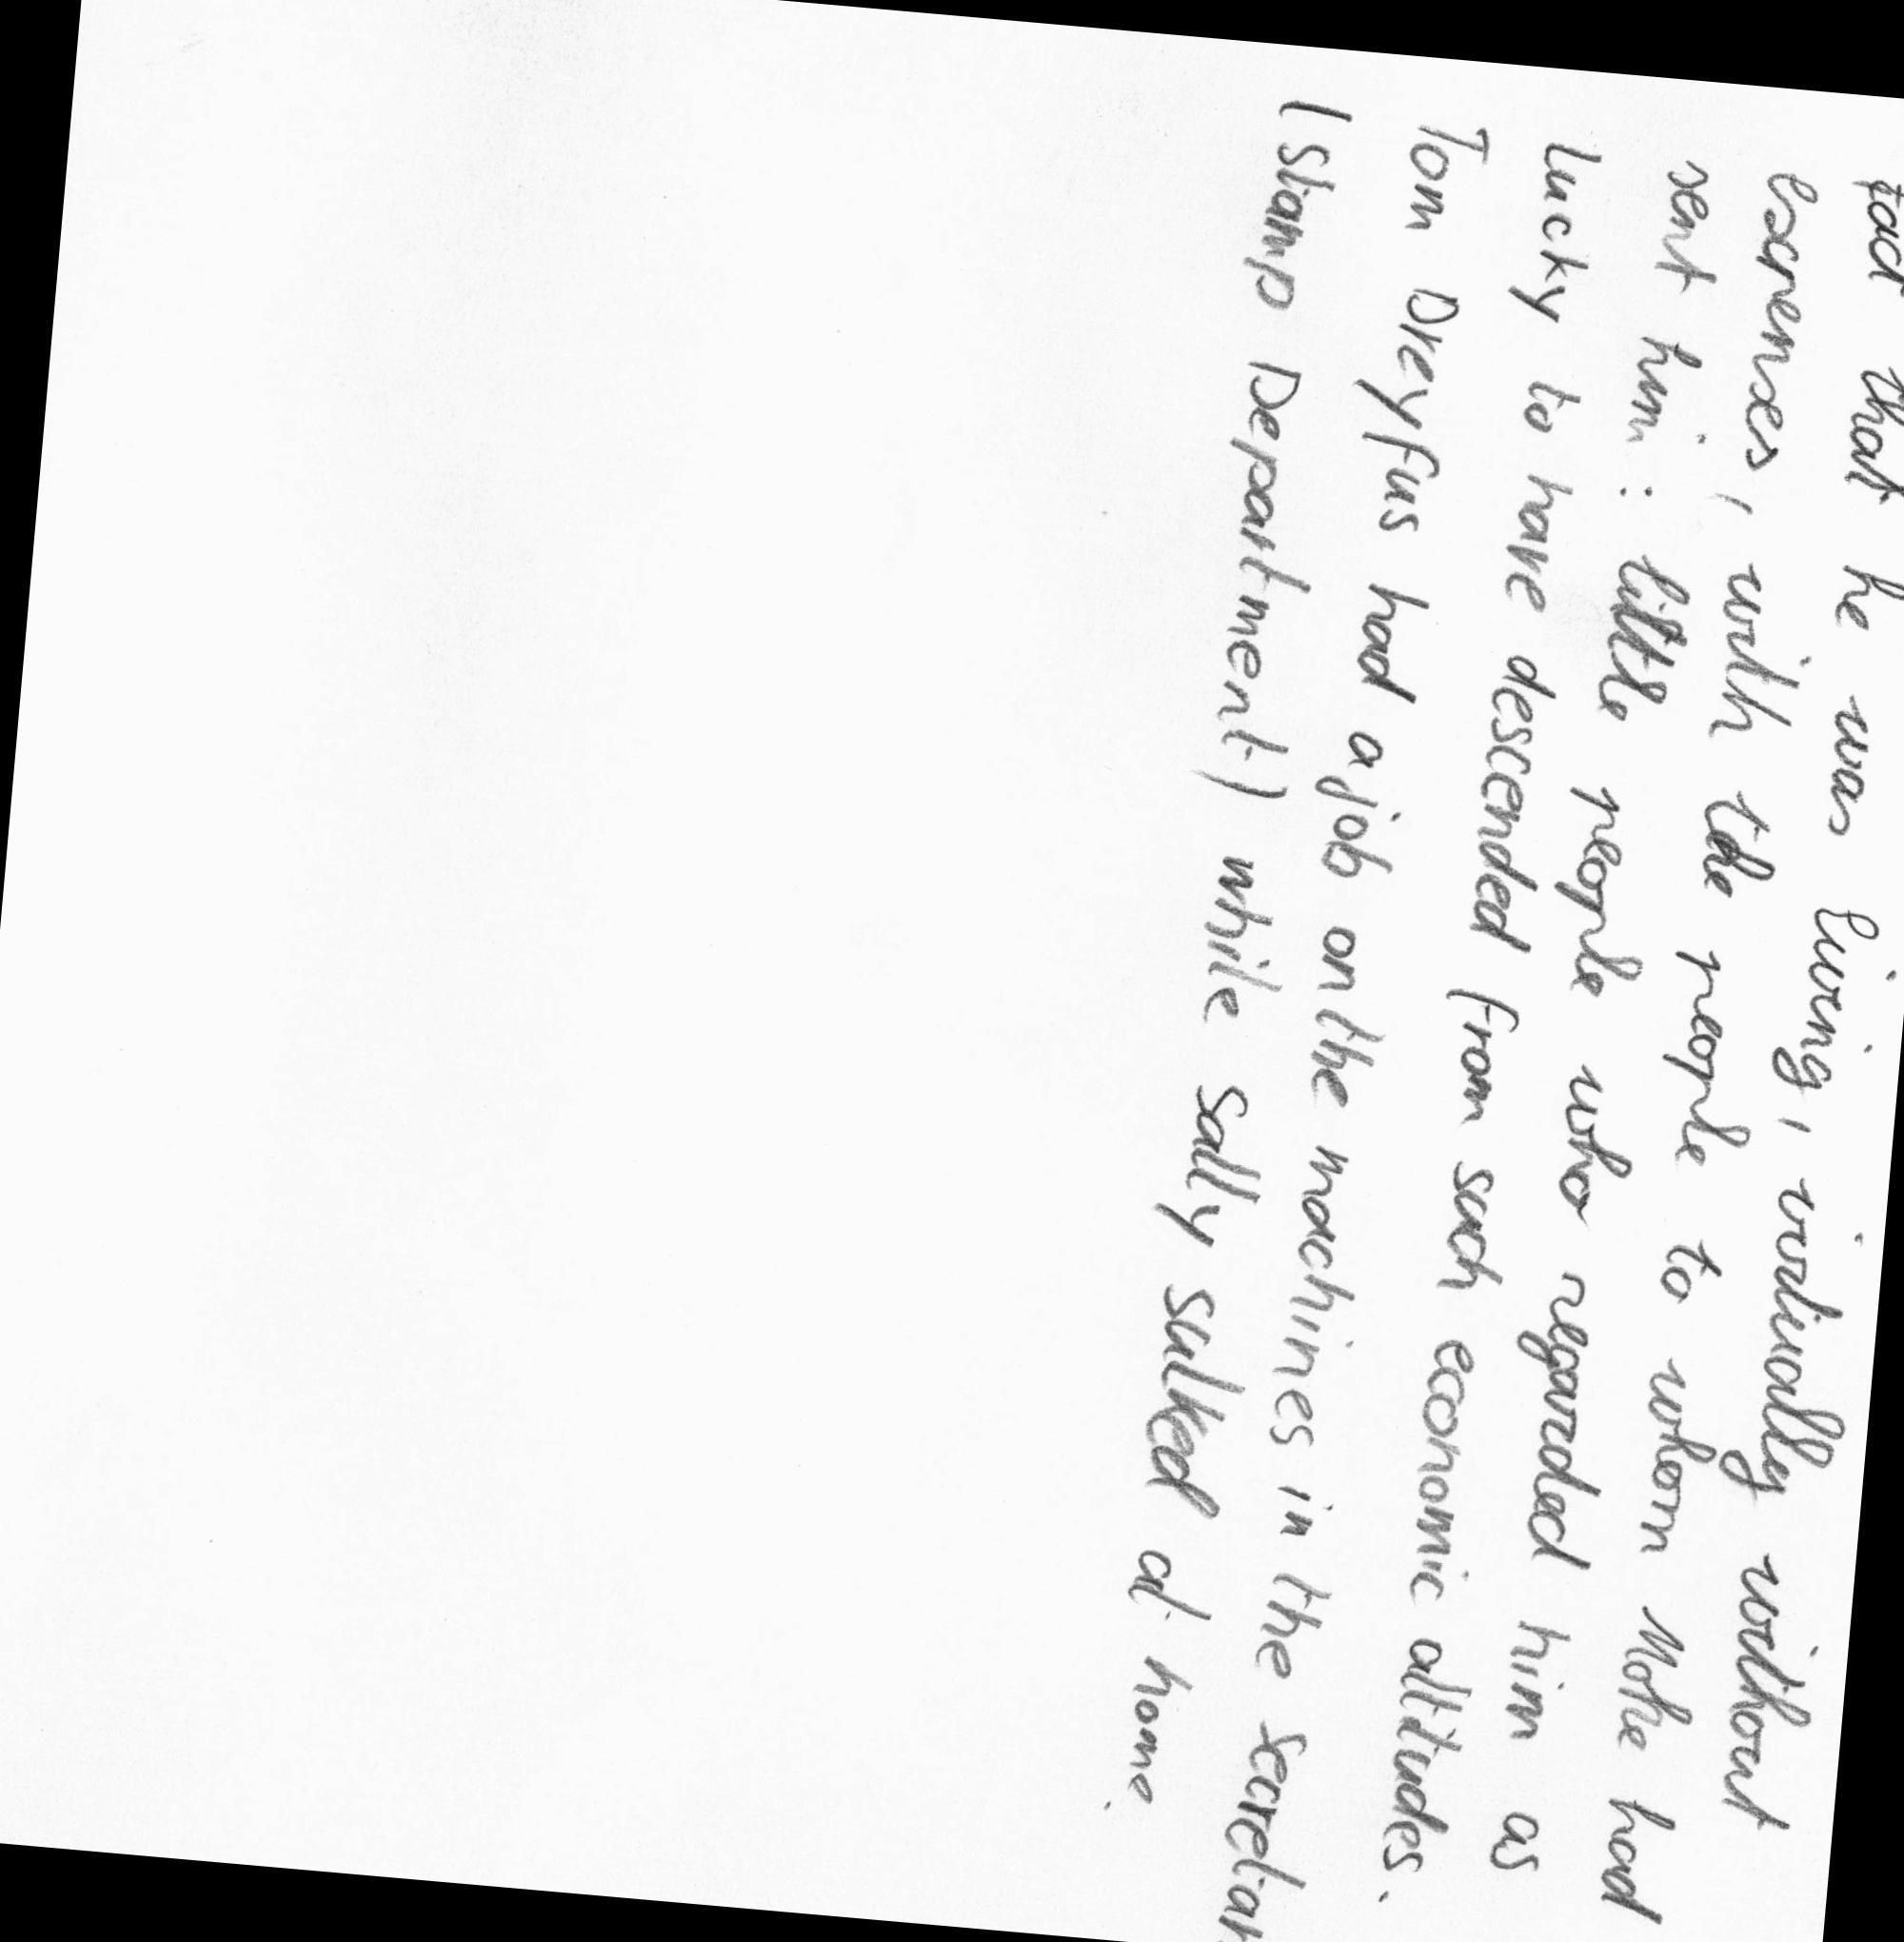 fact that he was living, virtually without
expenses, with the people to whom Mothe had
sent him: little people who regarded him as
lucky to have descended from such economic altitudes.
Tom Dreyfus had a job on the machines in the
(Stamp Department) while sally sulked at home.